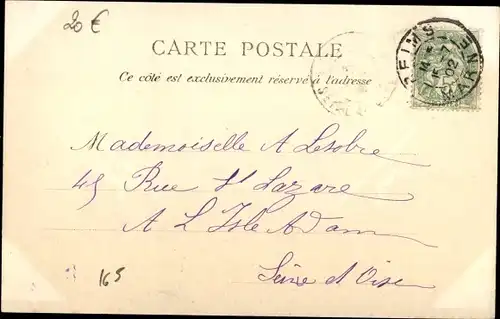 20 €
CARTE POSTALE
Ce côté est exclusivement réservé à l'adresse
REIMS
MARNE
02
Mademoiselle A Lesobre
45 Rue St Lazare
A L'Isle Adam
Seine et Oise
165